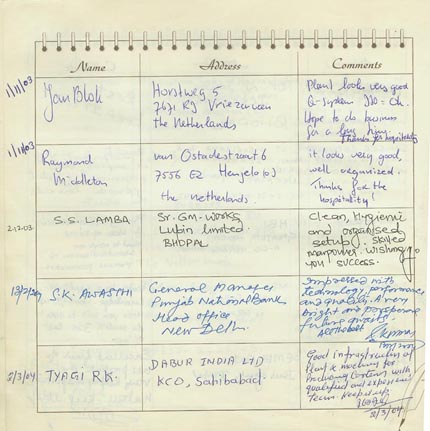 Name Address Comments
1/11/03
Jan Blok
Horstweg 5
7671 RJ Vriezenveen
the Netherlands
Plant looks very good
Q-system ISO = Oh.
Hope to do business
for a long time.
Thanks for hospitality
1/11/03
Raymond
Middleton
van Ostadestraat 6
7556 EZ Hengelo (o)
the netherlands
it looks very good,
well organized.
Thanks for the
hospitality!
2.12.03
S.S. LAMBA
Sr. GM-Works
Lupin limited.
BHOPAL
Clean, Hygienic
and organised
setup. skilled
manpower. wishing
you success.
S.K. AWASTHI
General Manager
Punjab National Bank
Head office
New Delhi.
Impressed with
technology, performance
and quality. A very
bright and prosperous
future awaits.
All the best
2/3/04
TYAGI R.K.
DABUR INDIA LTD
KCO, Sahibabad
Good infrastructure of
Plant & machinery for
Producing Cartons with
qualified and experienced
Team. Keep it up.
2/3/04